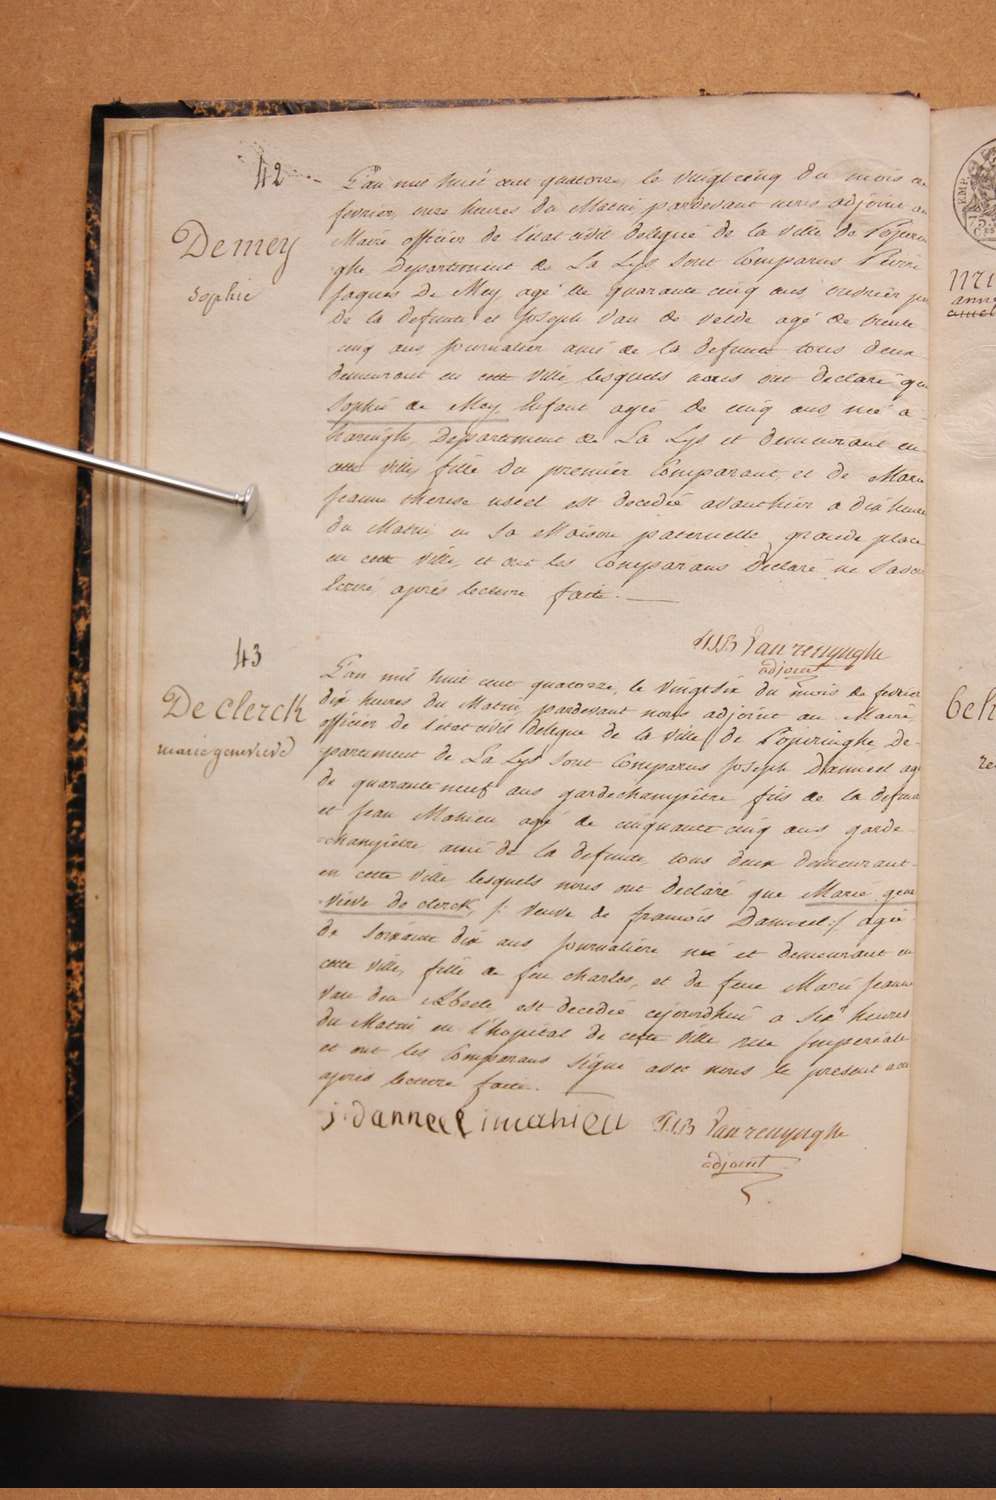 42
Demey
Sophie
L'an mil huit cent quatorze, le vingt cinq du mois de
fevrier, onze heures du Matin pardevant nous adjoint au
Maire officier de l'etat civil delegué de la ville de Poperin
ghe Departement de La Lys sont Comparus Pierre
Jaques De Mey agé de quarante cinq ans ouvrier
de la defunte et Joseph Van de Velde agé de trente
cinq ans journalier ami de la defunte tous deux
demeurant en cette ville, lesquels nous ont declaré que
Sophie de Mey, Enfant agée de cinq ans, née a
haringhe, Departement de La Lys et demeurant en
cette ville, fille du premier Comparant, et de Marie
Jeanne therese est decedée avanthier a dix heures
du Matin, en sa Maison paternelle grande place
en cette ville, et ont les Comparans Declaré ne savoir
Ecrire, après lecture faite.
PJB Vanrenynghe
adjoint
43
De Clerck
marie genevieve
L'an mil huit cent quatorze, le vingt six du mois de fevrier
dix heures du Matin, pardevant nous adjoint au Maire,
officier de l'etat civil delegue de la ville de Poperinghe, De-
partement de La Lys sont Comparus Joseph Danneel agé
de quarante neuf ans gardechampêtre fils de la defunte
et Jean Mahieu agé de cinquante cinq ans garde
champêtre ami de la defunte, tous deux demeurant
en cette ville lesquels nous ont declaré que Marie gene
vieve de clerck, /: veuve de francois Danneel :/ agée
de soixante dix ans journalière née et demeurant en
cette ville, fille de feu charles, et de feue Marie Jeanne
Van den Abeele est decedée cejourdhui a six heures
du Matin en l'hopital de cette ville rue Imperiale
et ont les Comparans signé avec nous le present acte
après lecture faite.
j. danneel j mahieu PJB Vanrenynghe
adjoint
EMP
anne
beh